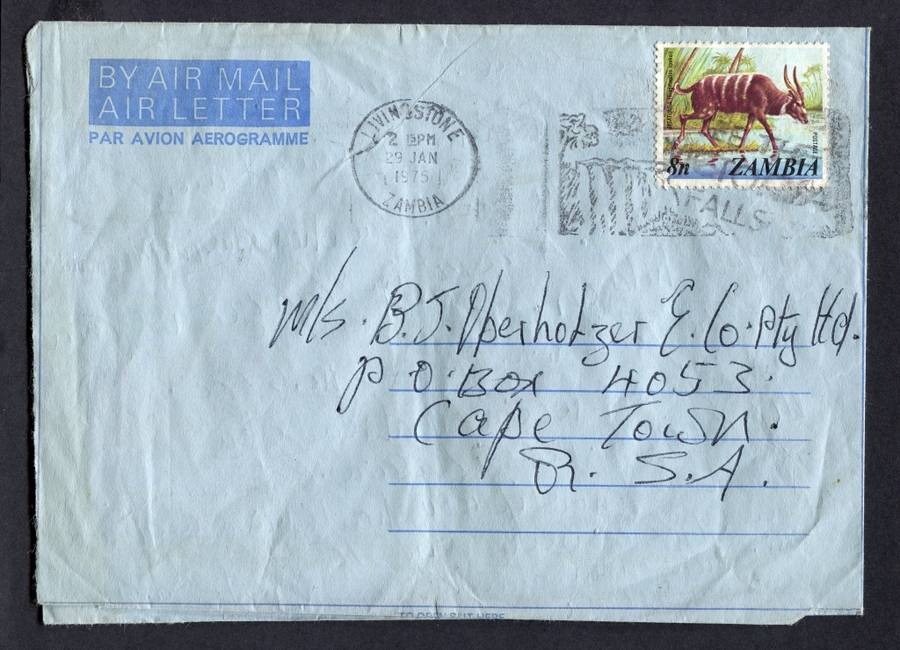 BY AIR MAIL
AIR LETTER
PAR AVION AEROGRAMME
LIVINGSTONE
2 15PM
29 JAN
1975
ZAMBIA
8n ZAMBIA
FALLS
M/s. B.J. Oberholzer & Co. Pty Ltd.
P.O. Box 4053.
Cape Town.
R. S.A.
TO OPEN SLIT HERE